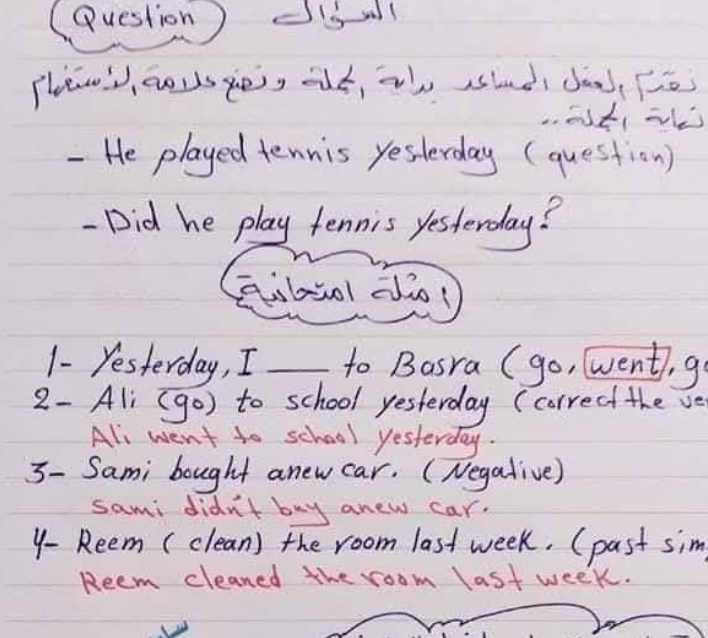 Question السؤال
نقدم الفعل المساعد بداية الجملة ونضع علامة الاستفهام
نهاية الجملة..
- He played tennis yesterday (question)
- Did he play tennis yesterday?
امثلة امتحانية
1- Yesterday, I ___ to Basra (go, went, go
2- Ali (go) to school yesterday (correct the ve
Ali went to school yesterday.
3- Sami bought anew car. (Negative)
Sami didn't buy anew car.
4- Reem (clean) the room last week. (past sim
Reem cleaned the room last week.